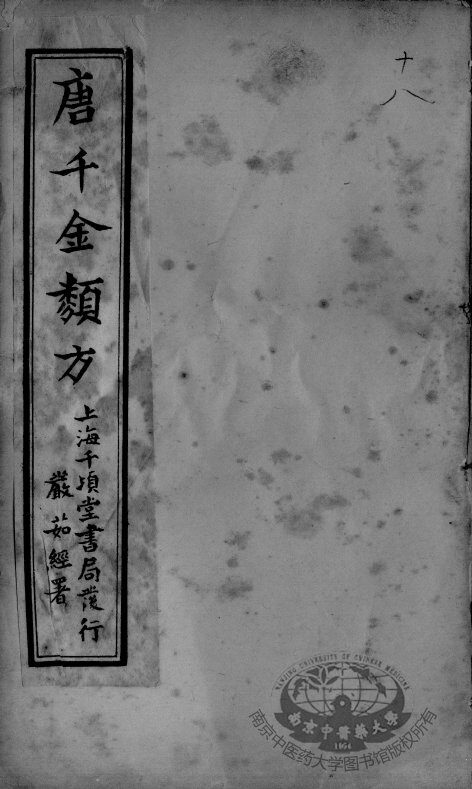 十八
唐千金類方
上海千頃堂書局發行
嚴茹經署
NANJING UNIVERSITY OF CHINESE MEDICINE
南京中醫藥大學
1954
南京中医药大学图书馆版权所有